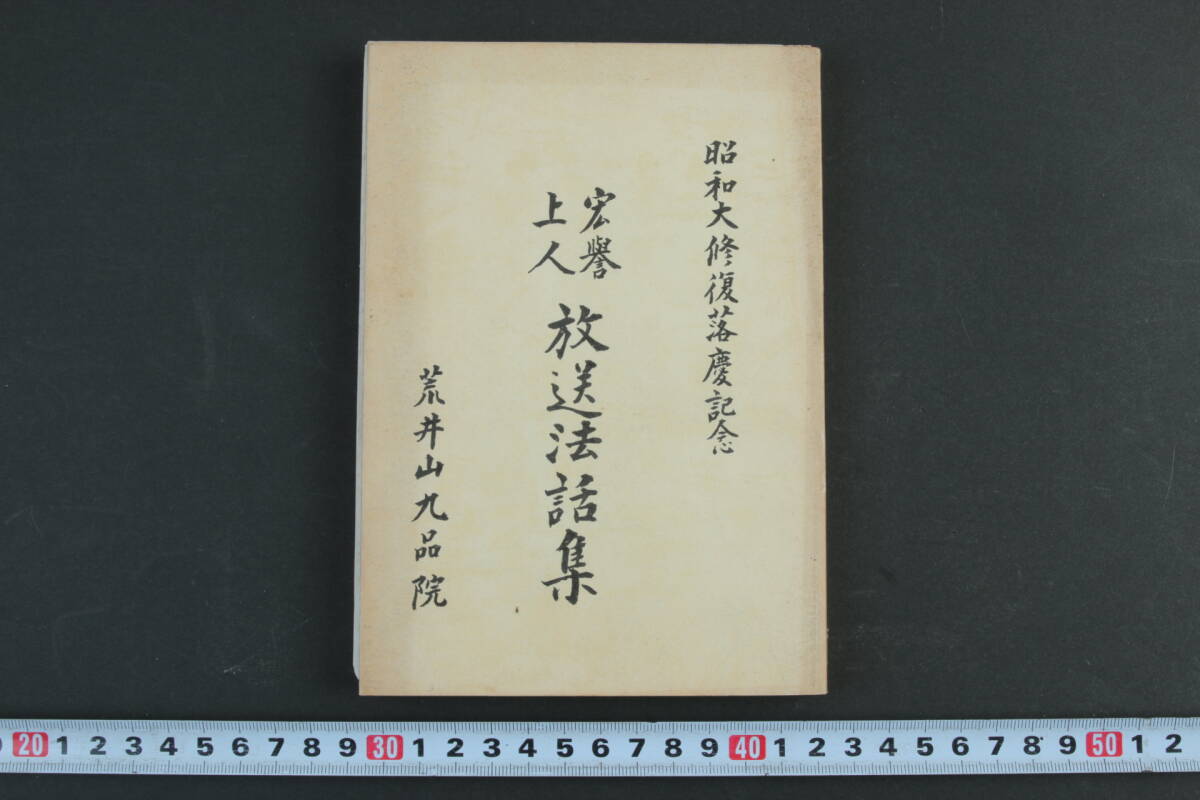 昭和大修復落慶記念
宏譽
上人
放送法話集
荒井山九品院
20 1 2 3 4 5 6 7 8 9 30 1 2 3 4 5 6 7 8 9 40 1 2 3 4 5 6 7 8 9 50 1 2